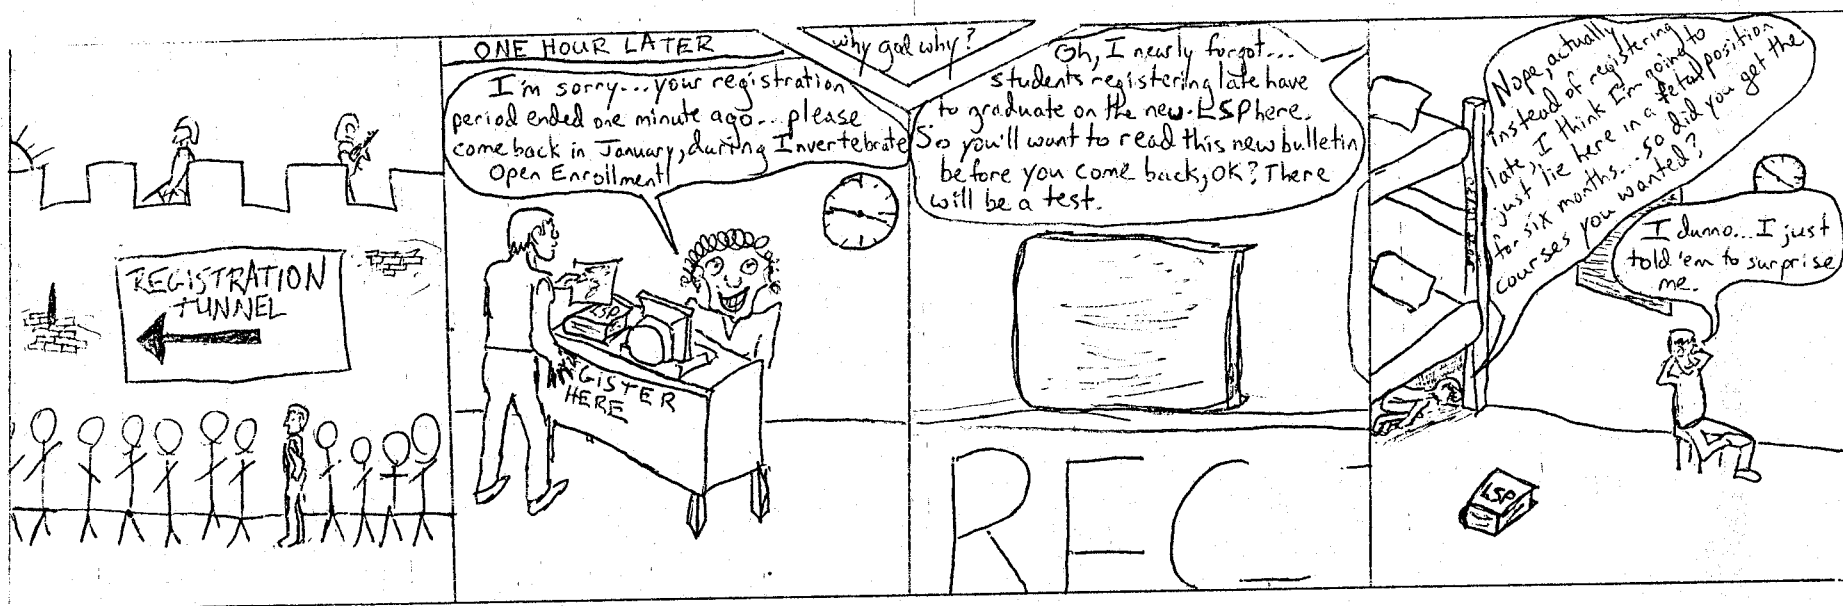 REGISTRATION
TUNNEL
ONE HOUR LATER
I'm sorry...your registration
period ended one minute ago...please
come back in January, during Invertebrate
Open Enrollment
LSP
GISTER
HERE
why god why?
Oh, I nearly forgot...
students registering late have
to graduate on the new LSP here.
So you'll want to read this new bulletin
before you come back, OK? There
will be a test.
REG
Nope, actually
instead of registering
late, I think I'm going to
just lie here in a fetal position
for six months...so did you get the
courses you wanted?
I dunno...I just
told 'em to surprise
me.
LSP